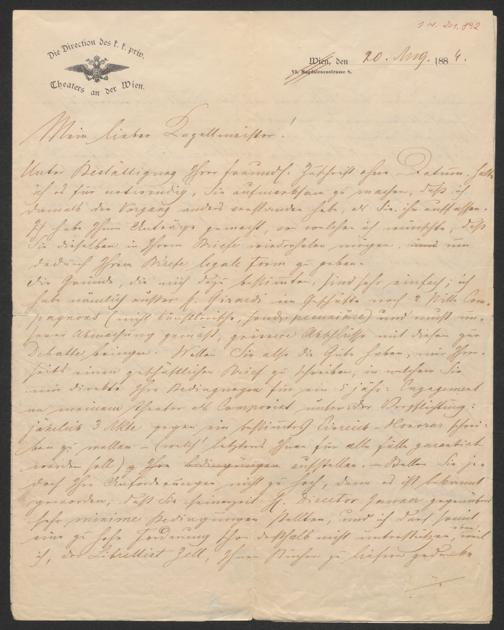 I.N. 201.832
Die Direction des k. k. priv.
Theaters an der Wien.
Wien, den 20. Aug. 1884.
VI. Magdalenenstrasse 8.
Mein lieber Kapellmeister!
Unter Bestätigung Ihrer freundl. Zuschrift ohne Datum, halte
ich es für nothwendig, Sie aufmerksam zu machen, daß ich
damals den Vorgang anders verstanden habe, als Sie ihn auffassen.
Ich habe Ihnen Anträge gemacht, von welchen ich wünschte, daß
Sie dieselben in Ihrem Briefe wiederholen mögen, und um
dadurch Ihrem Briefe legale Form zu geben.
Die Gründe, die mich dazu bestimmten, sind sehr einfach; ich
habe nämlich außer H. Girardi im Geschäfte noch 2 stille Com-
pagnons (nicht künstlerische, sondern pecuniäre) und muß un-
serer Abmachung gemäß, größere Abschlüsse mit diesen zur
Debatte bringen. Wollen Sie also die Güte haben, mir Ihrer-
seits einen geschäftlichen Brief zu schreiben, in welchem Sie
mir direkte Ihre Bedingungen für ein 5 jähr. Engagement
an meinem Theater als Componist unter der Verpflichtung:
jährlich 3 Akte gegen ein bestimmtes Honorar schrei-
ben zu wollen - (welch' letztens Ihnen für alle Fälle garantirt
werden soll) Ihre Bedingungen aufstellen. - Stellen Sie je-
doch Ihre Anforderungen nicht zu hoch, denn es ist bekannt
geworden, daß Sie seinerzeit H. Director Jauner gegenüber
sehr minime Bedingungen stellten, und ich darf somit
eine zu hohe Forderung schon deshalb nicht unterstützen, weil
ich, der Librettist Zell, Ihnen Bücher zu liefern gedenke